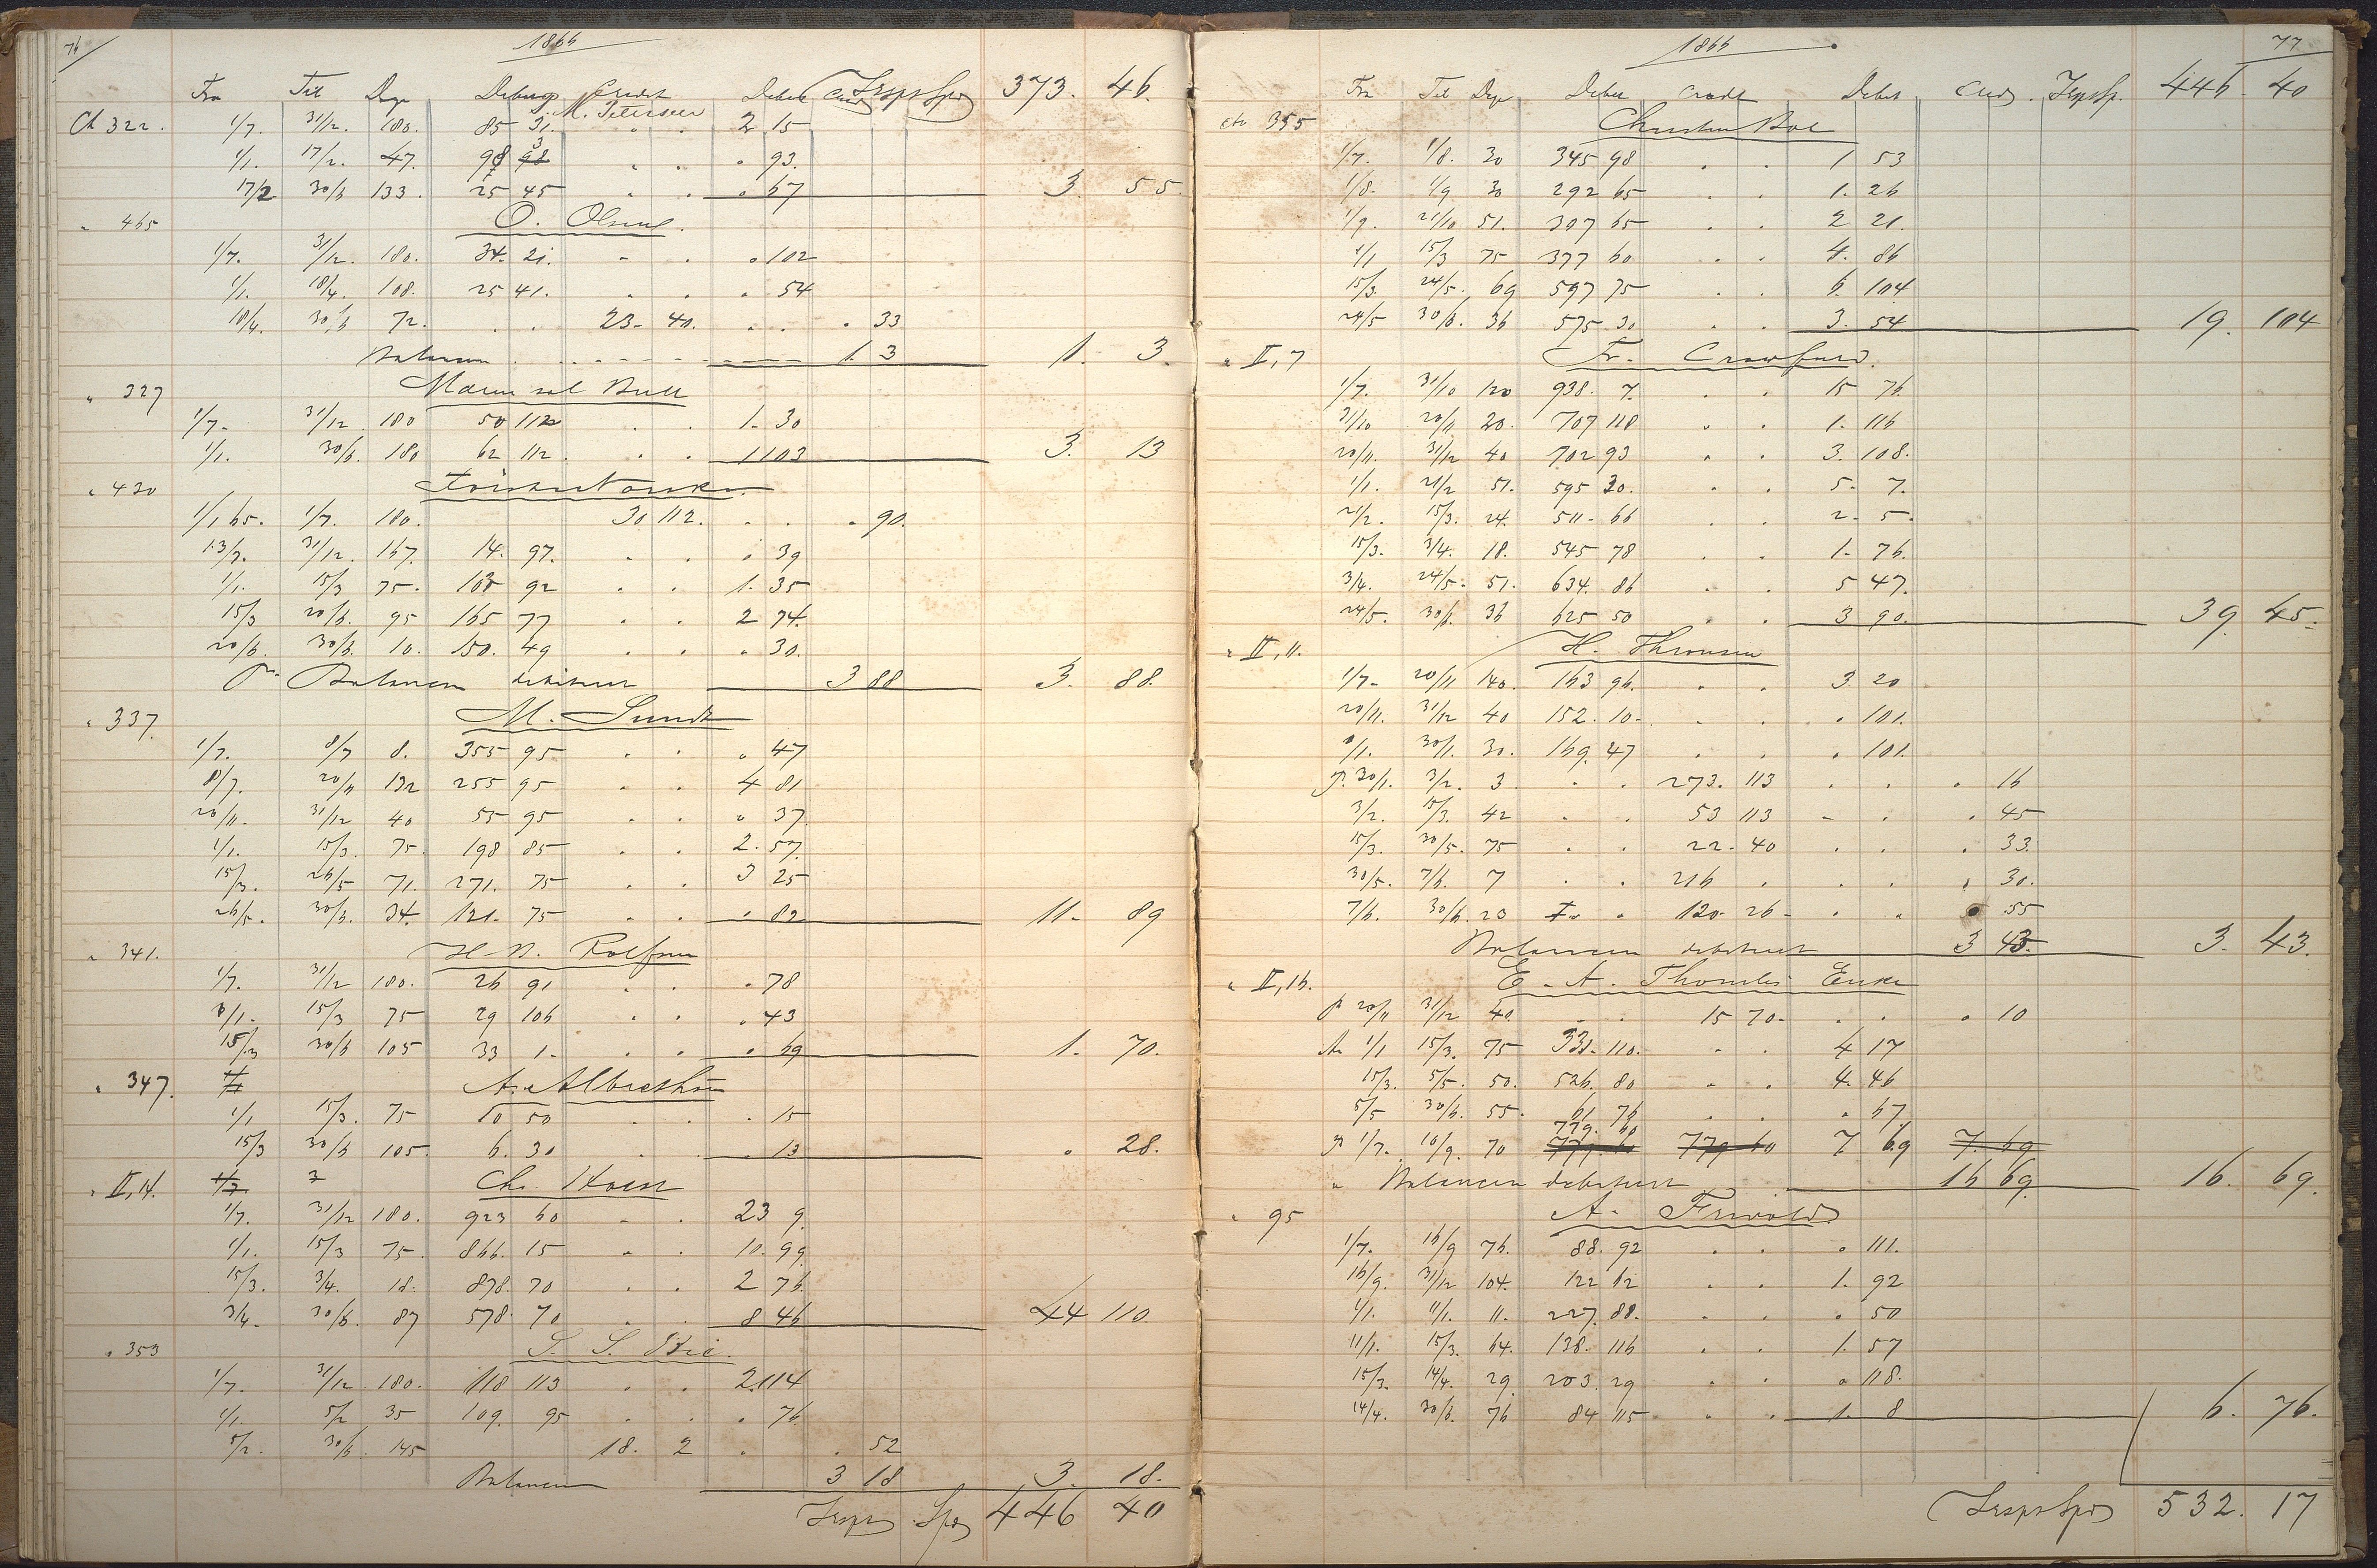 76
1866
Fra Til Dage Debet Credit Debet Cred Trspt Spd 373. 46.
Ct 322. J. M. Petersen
1/7. 31/12. 180. 85 31. . . 2 15
1/1. 17/2. 47. 98 3 . . . 93.
17/2 30/6 133. 25 45 . . . 67 3. 55.
" 465 O. Olsen
1/7. 31/12. 180. 34. 21. - . . 102
1/1. 18/4. 108. 25 41. . . . 54
18/4. 30/6 72. . . 23. 40. . . . 33
Balancen 1. 3 1. 3.
" 327 Bull
1/7- 31/12 180 50 112 . . 1. 30
1/1. 30/6. 180 62 112. . . 1 103 3. 13
" 430
1/1 65. 1/7. 180. 30 112. . . . 90.
13/7. 31/12. 167. 14. 97. . . . 39
1/1. 15/3 75. 108 92 . . 1. 35
15/3 20/6. 95 165 77 . . 2 74.
20/6. 30/6. 10. 150. 49 . . . 30.
pr. Balancen debiteret 3 88 3. 88.
" 337. M. Sundt
1/7. 8/7 8. 355 95 . . " 47
8/7. 20/11 132 255 95 . . 4 81
20/11. 31/12 40 55 95 . . " 37.
1/1. 15/3. 75. 198 85 . . 2. 57.
15/3. 26/5 71. 271. 75 . . 3 25
26/5. 30/6. 34. 121. 75 . . . 82 11- 89
" 341. H. N. Rolfsen
1/7. 31/12 180. 26 91 . . . 78
1/1. 15/3 75 29 106 . . . 43
15/3 30/6 105 33 1. . . . 69 1. 70.
" 347. A. Albrethsen
1/1 15/3. 75 10 50 . . . 15
15/3 30/6 105. 6. 30 . . . 13 . 28.
" II, 14. Chr. Horst
1/7. 31/12 180. 923 60 - . 23 9.
1/1. 15/3 75. 866. 15 . . 10. 99
15/3. 3/4. 18. 878. 70 . . 2 76.
3/4. 30/6. 87 578. 70 . . 8 46 44 110.
" 353 S. S.
1/7. 31/12. 180. 118 113 . . 2 114
1/1. 5/2 35 109. 95 . . . 76.
5/2. 30/6. 145 18. 2 . . 52
Balancen 3 18 3. 18.
Trspt Spd 446 40
77
1866
Fra Til Dage Debet Credit Debet Cred. Trspt Sp. 446. 40
Cto 355 Christian Boe
1/7. 1/8. 30 345 98 . . 1. 53
1/8. 1/9 30 292 65 . . 1. 26
1/9. 21/10 51. 307 65 . . 2 21.
1/1 15/3 75 377 60 . . 4. 86
15/3. 24/5. 69 597 75 . . 6. 104
24/5 30/6. 36 575 30 . . 3. 54 19. 104
" II, 7 Fr. Crawfurd.
1/7. 31/10 120 938. 7. . . 15 76.
31/10 20/11 20. 707 118 . . 1. 116
20/11. 31/12 40 702 93 . . 3. 108.
1/1. 21/2 51. 595 30. . . 5. 7.
21/2. 15/3. 24. 511. 66 . . 2. 5.
15/3. 3/4. 18. 545 78 . . 1. 76.
3/4. 24/5. 51. 634. 86 . . 5 47.
24/5. 30/6. 36 625 50 . . 3 90. 39. 45.
" II, 11. H. Thronsen
1/7- 20/11 140. 163 96. . . 3 20
20/11. 31/12 40 152. 10. . . . 101.
1/1. 30/1. 30. 169. 47 . . . 101.
p. 30/1. 3/2. 3 . . 273. 113 . . . 16
3/2. 15/3. 42 . . 53 113 - . . 45
15/3. 30/5. 75 . . 22. 40 . . . 33.
30/5. 7/6. 7 . . 216 . . . . 30.
7/6. 30/6. 23 . . 120. 26 . . . 55
Balancen debiteret 3 43. 3. 43.
" II, 16. E. A. Enke
p 20/11 31/12 40. . . 15 70. . . . 10
1/1 15/3. 75 331. 110. . . 4 17
15/3. 5/5. 50. 526. 80 . . 4. 46
5/5 30/6. 55. 61. 76 . . . 67
779. 60
p 1/7. 10/9. 70 779 60 779 60 7 69 7. 69
" Balancen debiteret 16 69. 16. 69.
" 95 A.
1/7. 16/9 76. 88. 92 . . . 111.
16/9. 31/12 104. 122 62 . . 1. 92
1/1. 11/1. 11. 227. 88. . . . 50
11/1. 15/3. 64. 138. 116 . . 1. 57
15/3. 14/4. 29. 203. 29 . . . 118.
14/4. 30/6. 76 84 115 . . 1. 8 6. 76.
Trspt Spd 532. 17